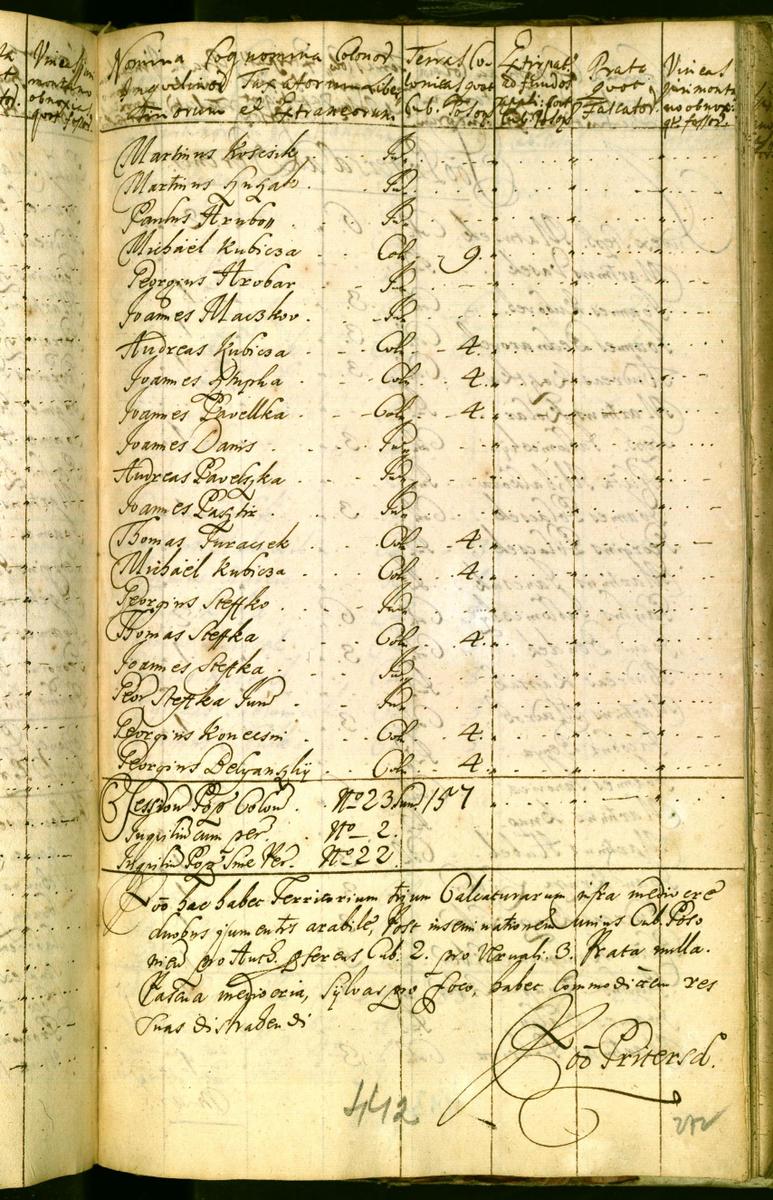 Nomina Cognomina Colonor
Inquilinor Taxatorum Liber
tinorum et Extraneorum
Terras Co
lonicas quot
Cub. Poson
Extirpat
Prata
quot
Falcator
Vineas
Martinus Koscsik Inq
Martinus Hugah Inq
Paulus Hrubon Inq
Michaël Kubicza Col. 9.
Georgius Hrobar Inq
Joannes Maczkov Inq
Andreas Kubicza Col. 4.
Joannes Col. 4.
Joannes Pavellka Col. 4.
Joannes Danis Inq
Andreas Pavelszka Inq
Joannes Pasztir Inq
Thomas Furacsek Col. 4.
Michaël Kubicza Col. 4.
Georgius Steffko Inq
Thomas Stefka Col. 4.
Joannes Stefka Inq
Geor Steffka Jun Inq
Georgius Konecsni Col. 4.
Georgius Belyanszkÿ Col. 4.
Session Pop Colon No 23 Sum 157
Inquilin cum ver. No 2.
Inquilin Pop Sine Ver. No 22
Poõ hac habet Territorium trium Calcaturarum infra mediocre
duobus jumentis arabile, Post inseminationem unius Cub. Poso
nien pro Auth. pferens Cub. 2. pro Vernali. 3. Prata nulla.
Pascua mediocria, Sylvas pro foco, habet Commoditatem res
suas distrahendi
Poõ Pritersd.
442